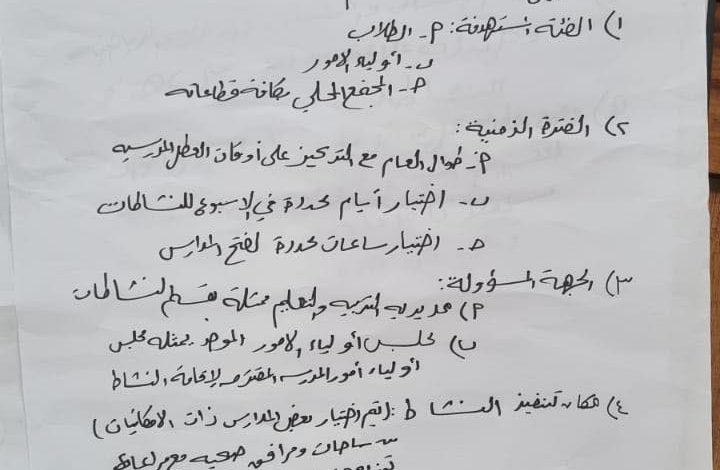 ١) الفئة المستهدفة: أ- الطلاب
ب- أولياء الامور
ج- المجتمع المحلي بكافة قطاعاته
٢) الفترة الزمنية:
أ- طوال العام مع التركيز على أوقات العطل المدرسيه
ب- اختيار أيام محددة في الاسبوع للنشاطات
ج- اختيار ساعات محددة لفتح المدارس
٣) الجهة المسؤولة:
أ) مديريه التربيه والتعليم ممثلة بقسم النشاطات
ب) مجلس أولياء الامور الموحد يمثله مجلس
أولياء أمور المدرسه المقترحه لإقامة النشاط
٤) مكان تنفيذ النشاط: (يتم اختيار بعض المدارس ذات الامكانيات)
ساحات ومرافق صحيه